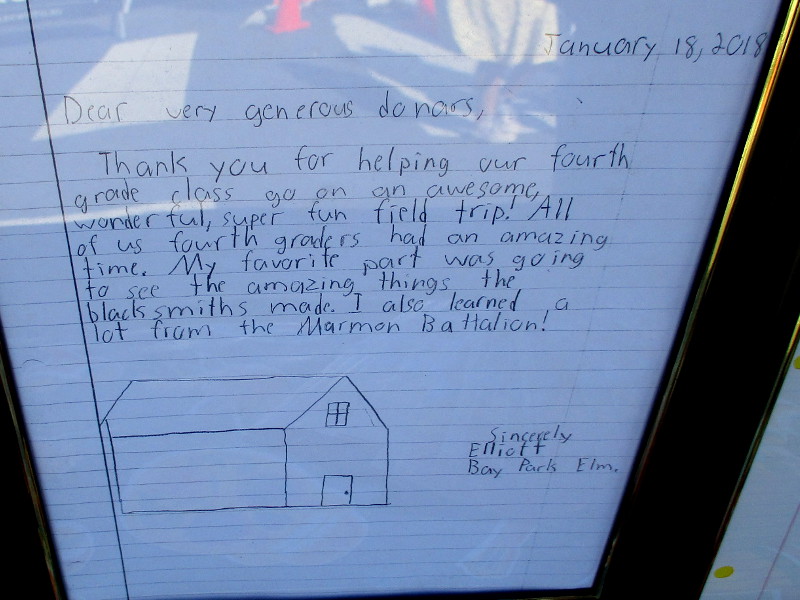 January 18, 2018
Dear very generous donars,
Thank you for helping our fourth
grade class go on an awesome,
wonderful, super fun field trip! All
of us fourth graders had an amazing
time. My favorite part was going
to see the amazing things the
blacksmiths made. I also learned a
lot from the Marmon Battalion!
Sincerely
Elliott
Bay Park Elm.